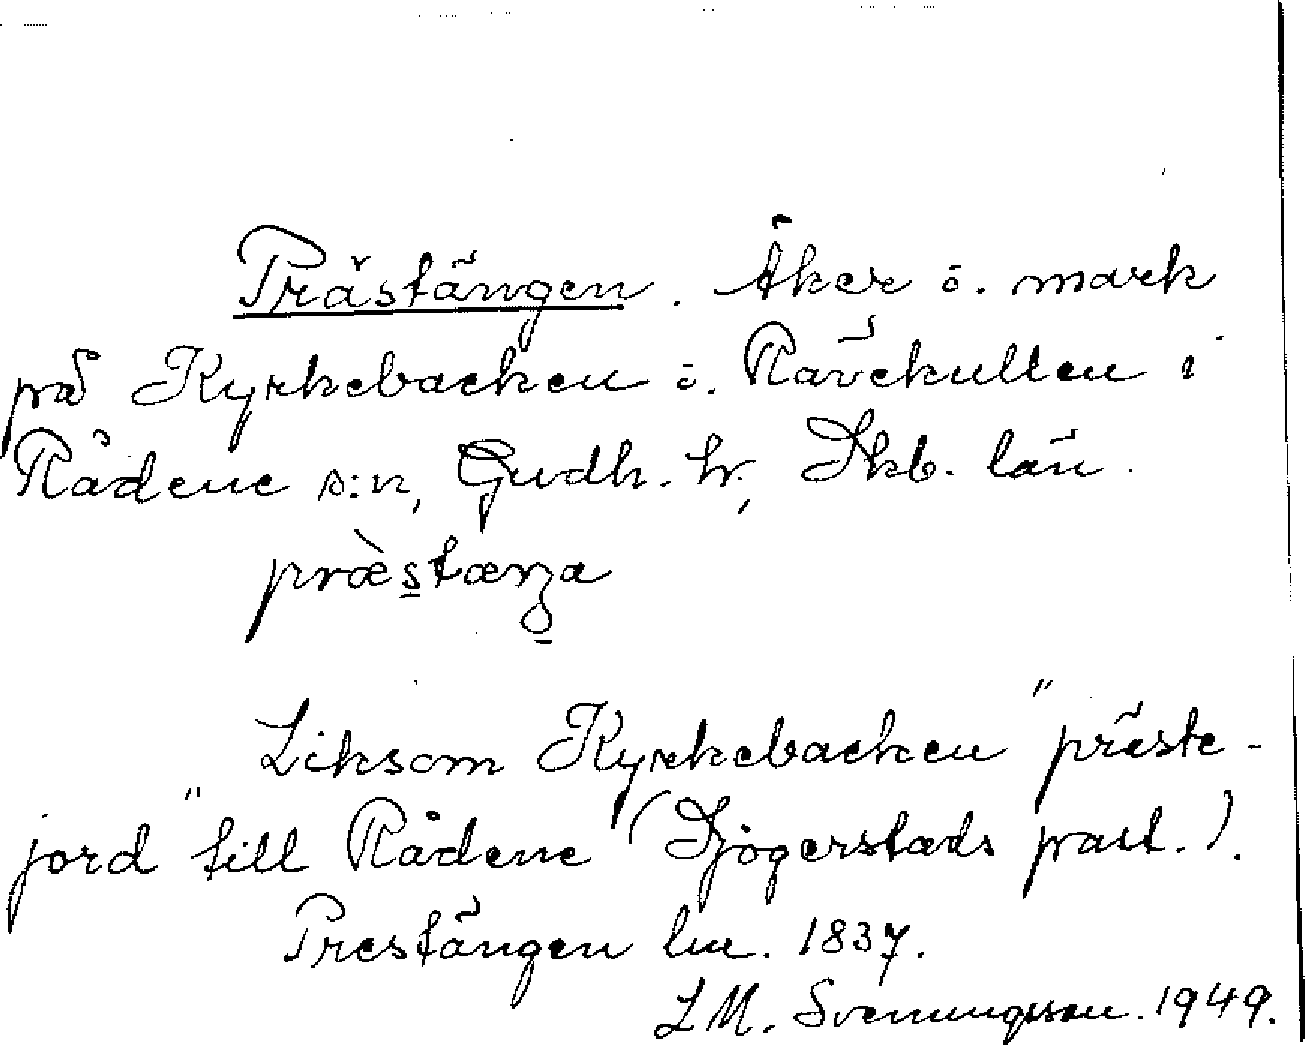 Prästängen. Åker o. mark
på Kyrkebacken o. Rävekullen i
Rådene s:n, Gudh. hr, Skb. län.
præ̀stæŋa
Liksom Kyrkebacken "präste-
jord" till Rådene (Sjogerstads past.).
Prestängen lm. 1837.
L M. Svenungsson. 1949.